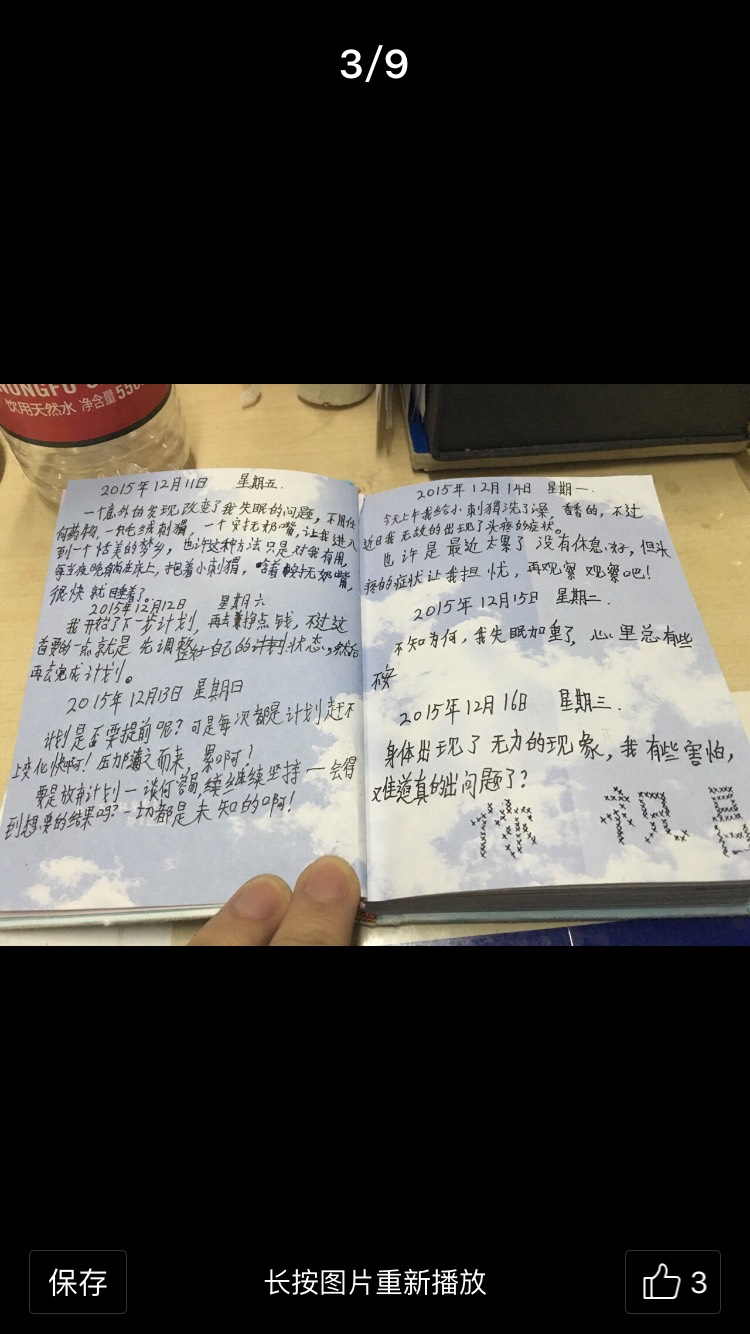 3/9
NONGFU
饮用天然水 净含量550
2015年12月11日 星期五.
一个意外的发现改变了我失眠的问题,不用任
何药物,一只毛绒刺猬,一个安抚奶嘴,让我进入
到一个恬美的梦乡,也许这种方法只是对我有用,
每当夜晚躺在床上,抱着小刺猬,啥着安抚奶嘴,
很快就睡着了。
2015年12月12日 星期六
我开始了下一步计划,再去挣点钱,不过这
首要的一点就是先调整好自己的状态,然后
再去完成计划。
2015年12月13日 星期日
计划是否要提前呢?可是每次都是计划赶不
上变化快啊!压力随之而来,累啊!
要是放弃计划一谈何容易,继续坚持一会得
到想要的结果吗?一切都是未知的啊!
2015年12月14日 星期一.
今天上午我给小刺猬洗了澡,香香的,不过
近日我无故的出现了头疼的症状。
也许是最近太累了没有休息好,但头
疼的症状让我担忧,再观察观察吧!
2015年12月15日 星期二.
不知为何,我失眠加重了,心里总有些
不安
2015年12月16日 星期三.
身体出现了无力的现象,我有些害怕,
难道真的出问题了?
保存
长按图片重新播放
3